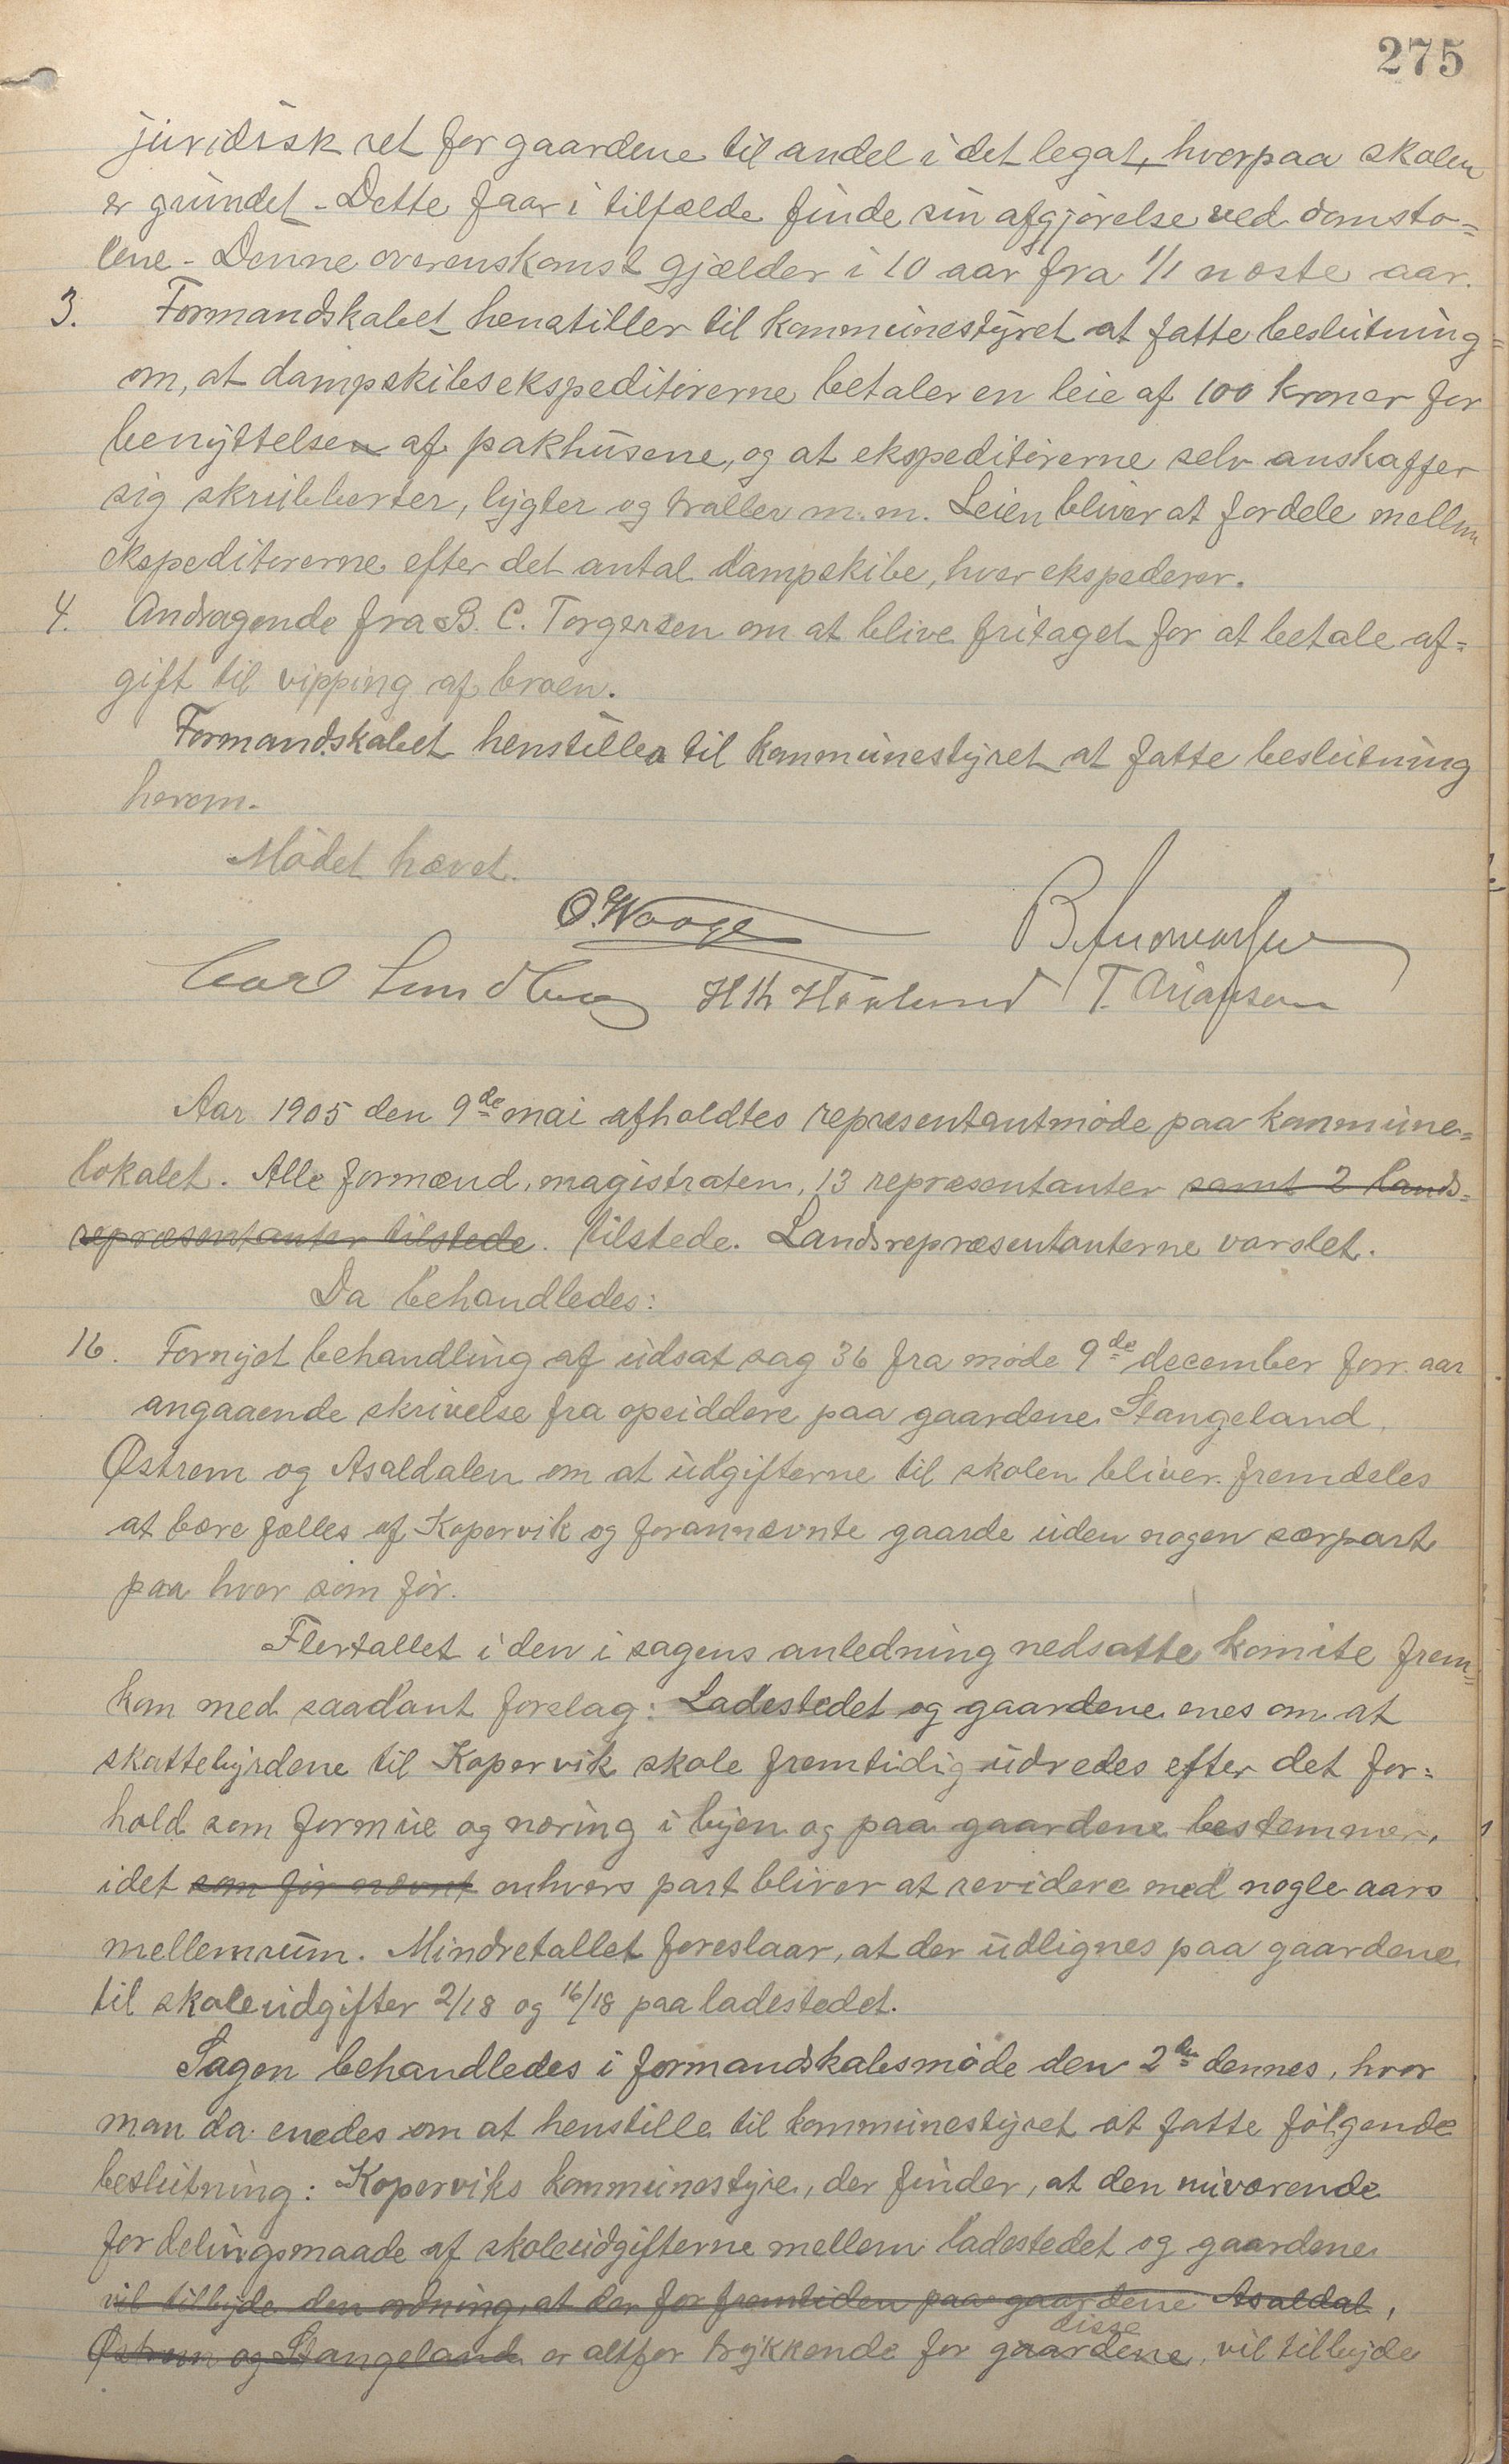 275
juridisk ret for gaardene til andel i det legat, hvorpaa skolen
er grundet - Dette faar i tilfælde finde sin afgjørelse ved domsto=
lene - Denne overenskomst gjælder i 10 aar fra 1/1 næste aar.
3. Formandskabet henstiller til kommunestyret at fatte beslutning=
om, at dampskibsekspeditørerne betaler en leie af 100 kroner for
benyttelsen af pakhusene, og at ekspeditørerne selv anskaffer
sig skrubberter, lygter og traller m.m. Leien bliver at fordele mellem
ekspeditørerne efter det antal dampskibe, hver ekspederer.
4. Andragende fra B. C. Torgersen om at blive fritaget for at betale af=
gift til vipping af broen.
Formandskabet henstiller til kommunestyret at fatte beslutning
herom.
Mødet hævet.
O. Waage
Carl Lundberg H Th Høvlund
Aar 1905 den 9de mai afholdtes repræsentantmøde paa kommune=
lokalet. Alle formænd, magistraten, 13 repræsentanter samt 2 lands=
repræsentanter tilstede. tilstede. Landsrepræsentanterne varslet.
Da behandledes:
16. Fornyet behandling af udsat sag 36 fra møde 9de december forr. aar
angaaende skrivelse fra opsiddere paa gaardene Stangeland,
Østrem og Asaldalen om at udgifterne til skolen bliver fremdeles
at bære fælles af Kopervik og forannævnte gaarde uden nogen særpart
paa hver som før.
Flertallet i den i sagens anledning nedsatte komite frem=
kom med saadant forslag: Ladestedet og gaardene enes om at
skattebyrdene til Kopervik skole fremtidig udredes efter det for=
hold som formue og næring i byen og paa gaardene bestemmer,
idet som før nævnt enhvers part bliver at revidere med nogle aars
mellemrum. Mindretallet foreslaar, at der udlignes paa gaardene
til skoleudgifter 2/18 og 16/18 paa ladestedet.
Sagen behandledes i formandskabsmøde den 2den dennes, hvor
man da enedes om at henstille til kommunestyret at fatte følgende
beslutning: Koperviks kommunestyre, der finder, at den nuværende
fordelingsmaade af skoleudgifterne mellem ladestedet og gaardene
vil tilbyde den ordning, at der for fremtiden paa gaardene Asaldal,
Østrem og Stangeland er altfor trykkende for disse gaardene, vil tilbyde